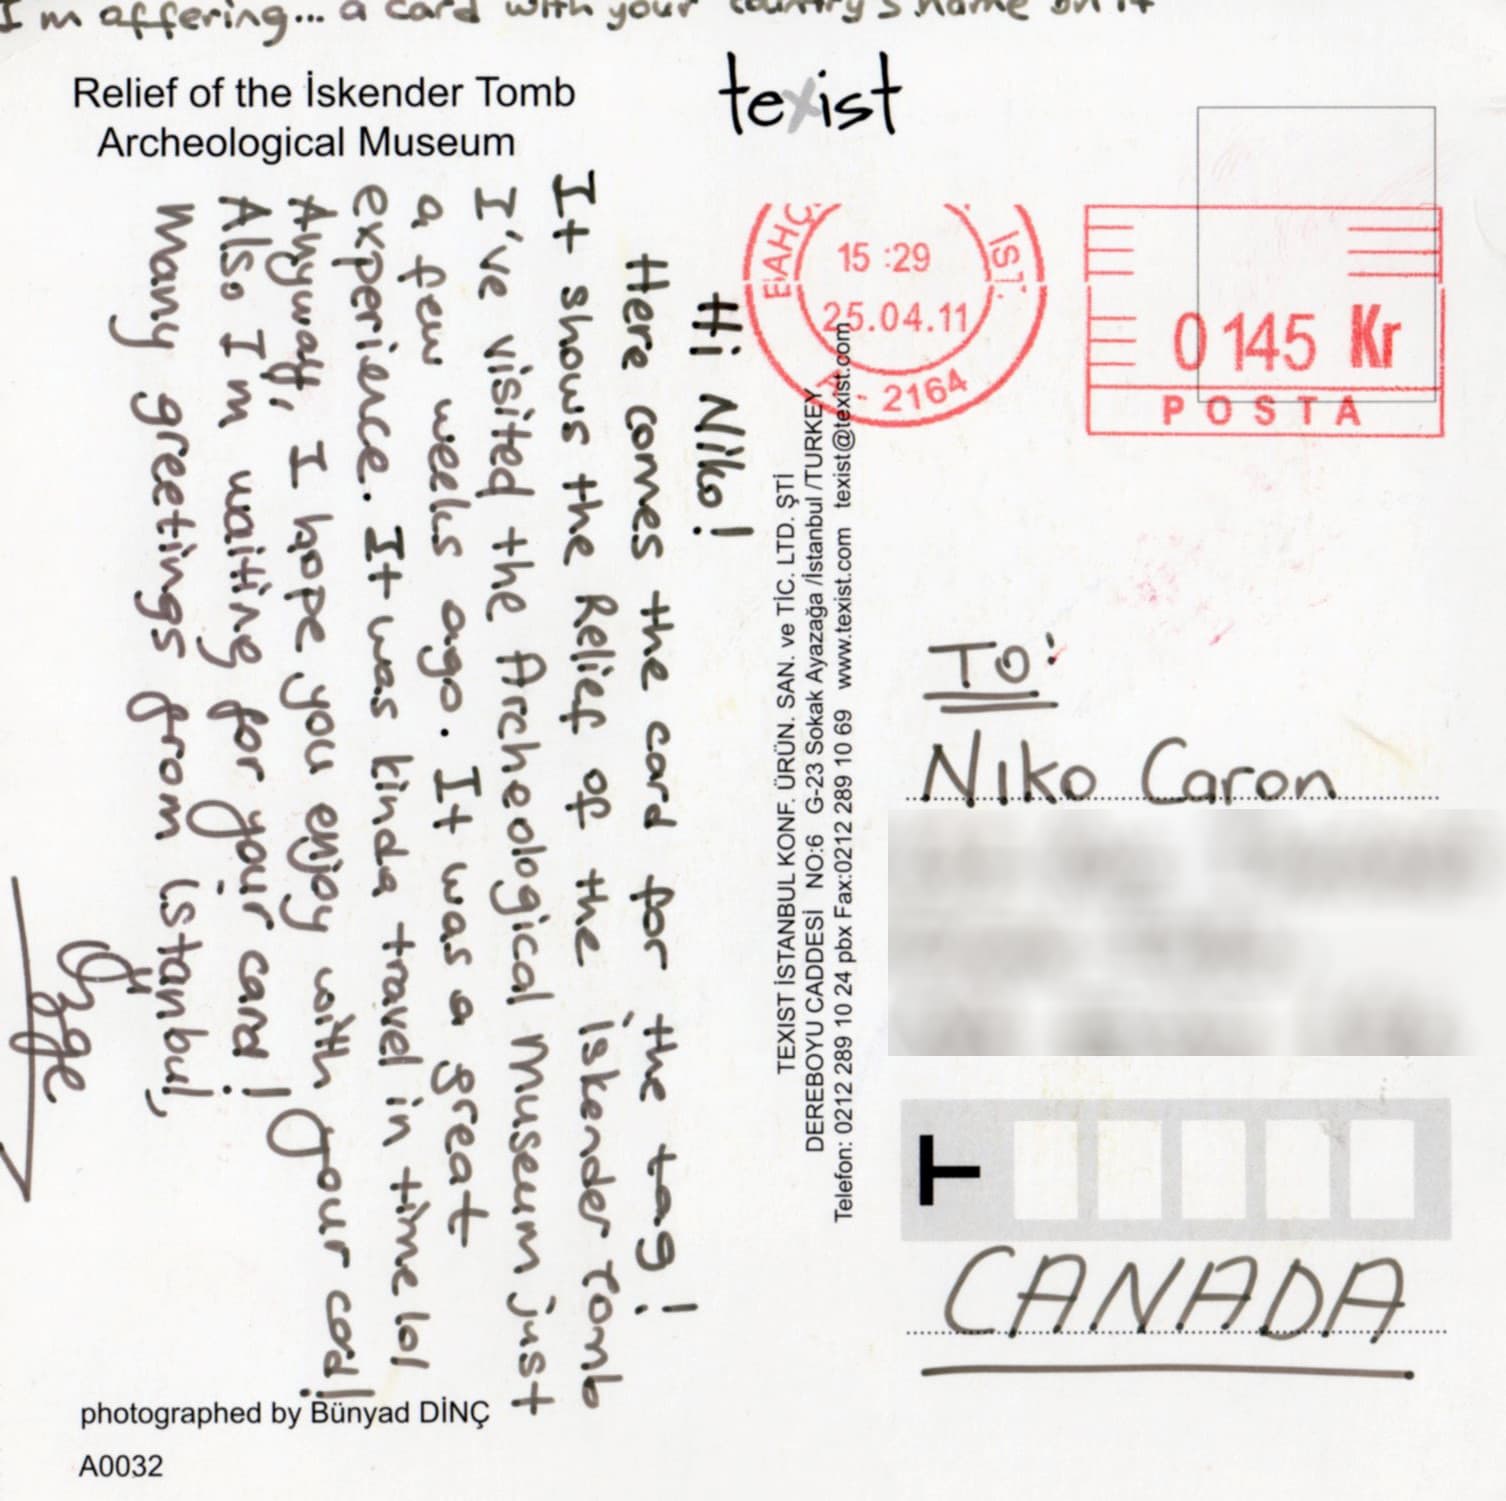 I'm offering... a card with your country's name on it
Relief of the İskender Tomb
Archeological Museum
texist
Hi Niko!
Here comes the card for the tag!
It shows the Relief of the İskender Tomb
I've visited the Archeological Museum just
a few weeks ago. It was a great
experience. It was kinda travel in time lol
Anyway, I hope you enjoy with your card!
Also I'm waiting for your card!
Many greetings from İstanbul,
Özge
photographed by Bünyad DİNÇ
A0032
TEXIST İSTANBUL KONF. ÜRÜN. SAN. ve TİC. LTD. ŞTİ
DEREBOYU CADDESİ NO:6 G-23 Sokak Ayazağa /İstanbul /TURKEY
Telefon: 0212 289 10 24 pbx Fax:0212 289 10 69 www.texist.com texist@texist.com
15 :29
25.04.11
İST.
2164
0145 Kr
POSTA
To:
Niko Caron
CANADA